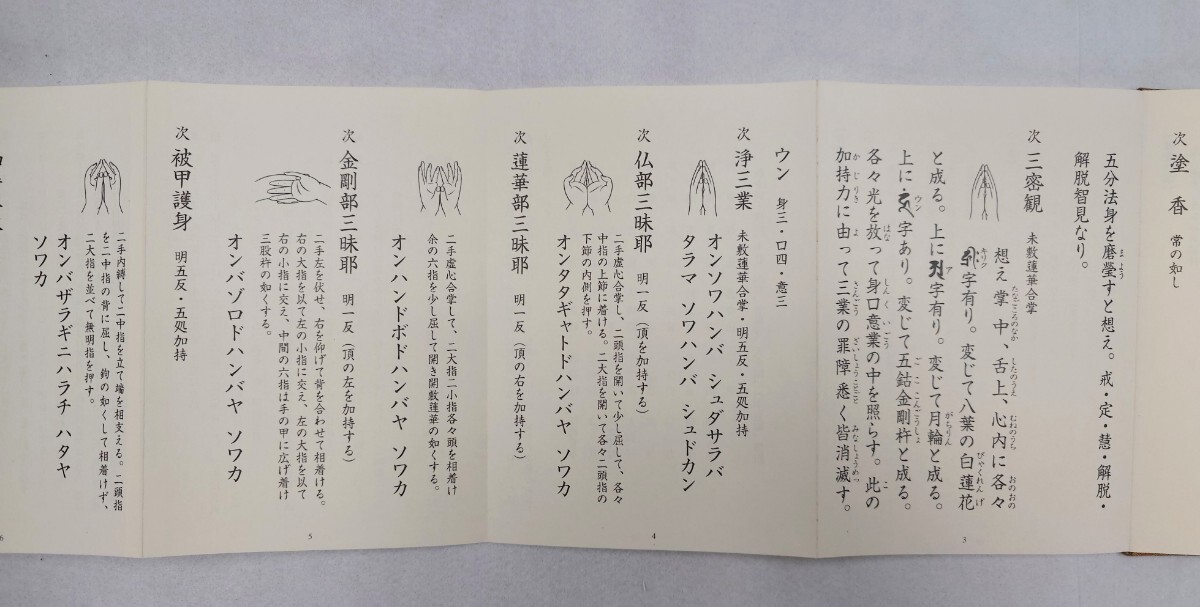 次 塗香 常の如し
五分法身を磨瑩すと想え。戒・定・慧・解脱・
解脱智見なり。
次 三密観 未敷蓮華合掌
想え掌中、舌上、心内に各々
字有り。変じて八葉の白蓮花
と成る。上に字有り。変じて月輪と成る。
上に字あり。変じて五鈷金剛杵と成る。
各々光を放って身口意業の中を照らす。此の
加持力に由って三業の罪障悉く皆消滅す。
3
ウン 身三・口四・意三
次 浄三業 未敷蓮華合掌・明五反・五処加持
オンソワハンバ シュダサラバ
タラマ ソワハンバ シュドカン
次 仏部三昧耶 明一反(頂を加持する)
二手虚心合掌し、二頭指を開いて少し屈して、各々
中指の上節に着ける。二大指を開いて各々二頭指の
下節の内側を押す。
オンタタギャトドハンバヤ ソワカ
4
次 蓮華部三昧耶 明一反(頂の右を加持する)
二手虚心合掌して、二大指二小指各々頭を相着け
余の六指を少し屈して開き開敷蓮華の如くする。
オンハンドボドハンバヤ ソワカ
次 金剛部三昧耶 明一反(頂の左を加持する)
二手左を伏せ、右を仰げて背を合わせて相着ける。
右の大指を以て左の小指に交え、左の大指を以て
右の小指に交え、中間の六指は手の甲に広げ着け
三股杵の如くする。
オンバゾロドハンバヤ ソワカ
5
次 被甲護身 明五反・五処加持
二手内縛して二中指を立て端を相支える。二頭指
を二中指の背に屈し、鉤の如くして相着けず、
二大指を並べて無明指を押す。
オンバザラギニハラチ ハタヤ
ソワカ
6